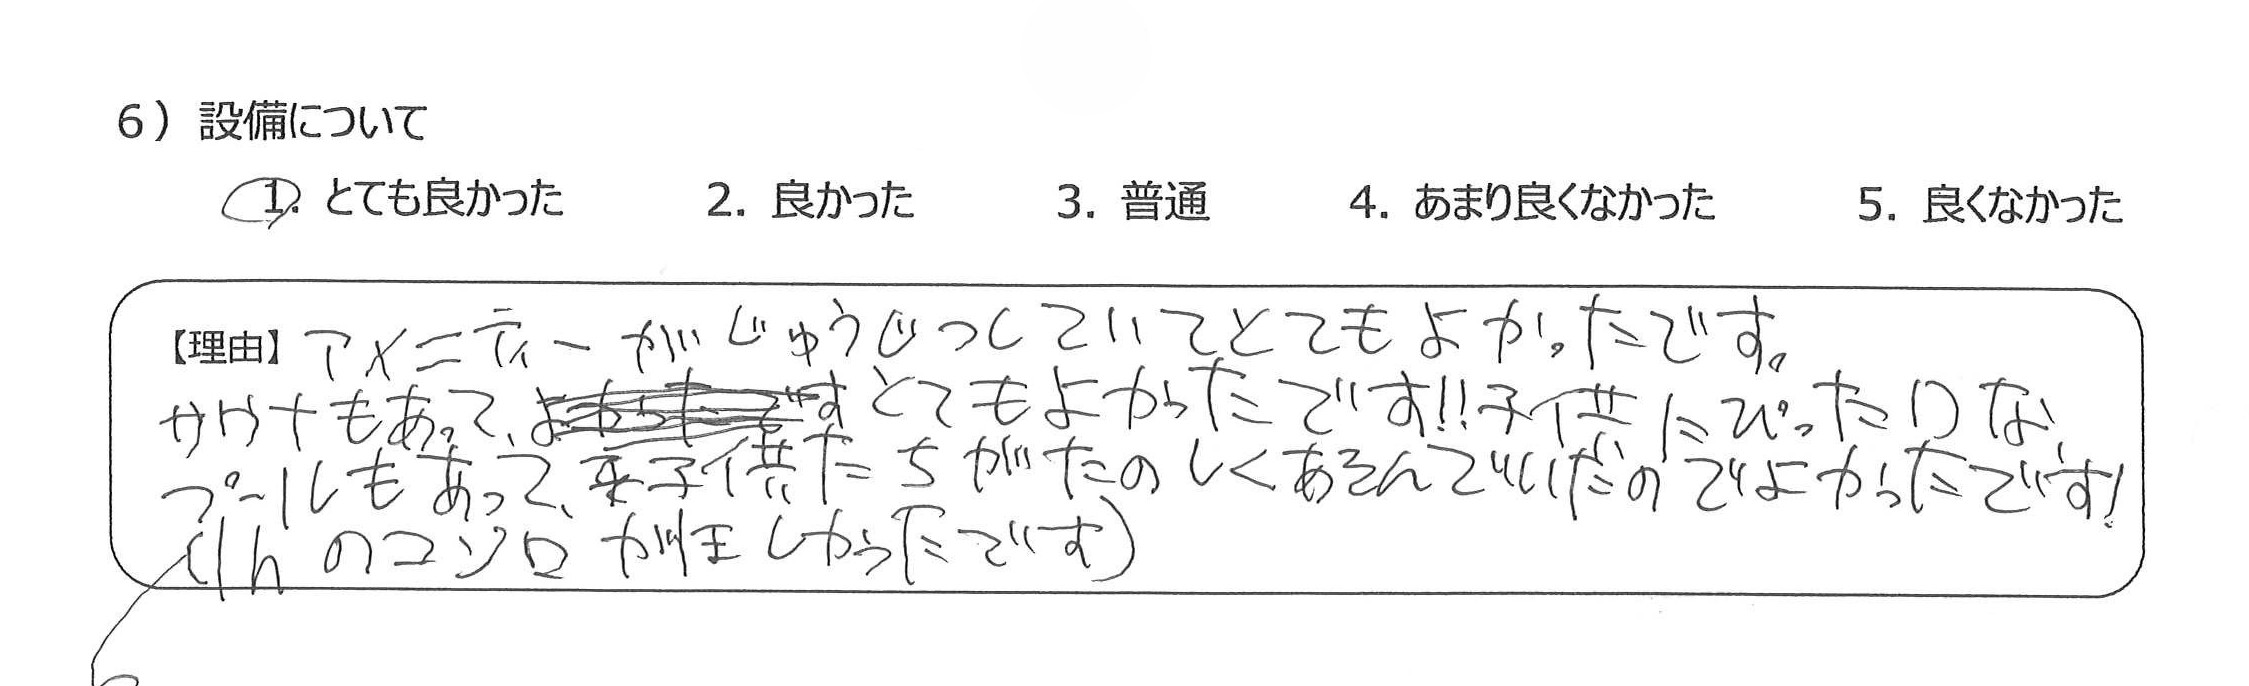 6）設備について
1. とても良かった 2. 良かった 3. 普通 4. あまり良くなかった 5. 良くなかった
【理由】アメニティーがじゅうじつしていてとてもよかったです。
サウナもあって、とてもよかったです!!子供にぴったりな
プールもあって、子供たちがたのしくあそんでいたのでよかったです!
のコンロがほしかったです)